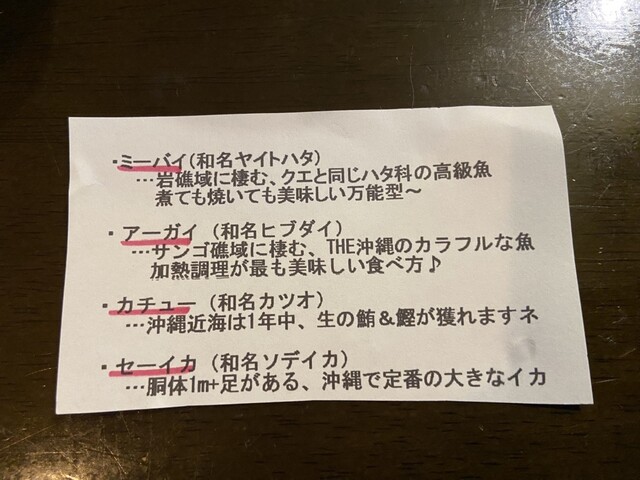 ・ミーバイ(和名ヤイトハタ)
…岩礁域に棲む、クエと同じハタ科の高級魚
煮ても焼いても美味しい万能型～
・アーガイ (和名ヒブダイ)
…サンゴ礁域に棲む、THE沖縄のカラフルな魚
加熱調理が最も美味しい食べ方♪
・カチュー (和名カツオ)
…沖縄近海は1年中、生の鮪＆鰹が獲れますネ
・セーイカ (和名ソデイカ)
…胴体1m+足がある、沖縄で定番の大きなイカ